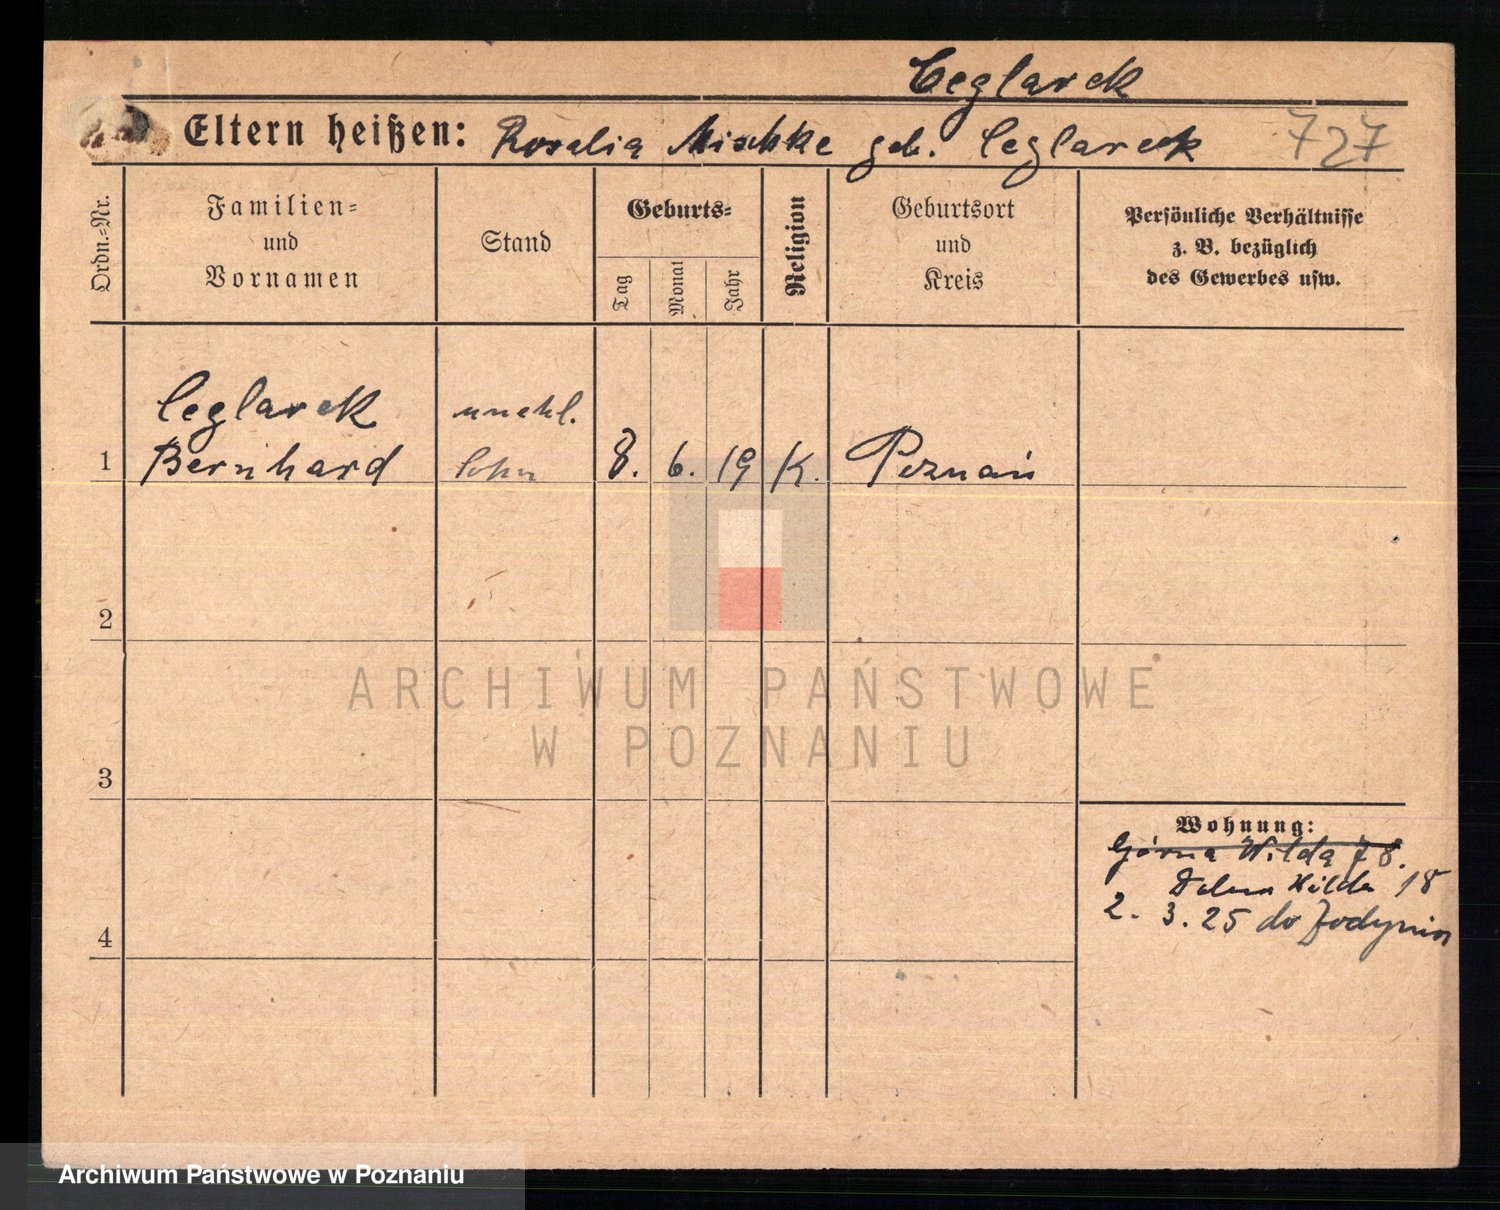 Ceglarek
Eltern heißen: Rosalia Mischke geb. Ceglarek 727
Ordn.-Nr.
Familien=
und
Vornamen
Stand
Geburts=
Tag
Monat
Jahr
Religion
Geburtsort
und
Kreis
Persönliche Verhältnisse
z. B. bezüglich
des Gewerbes usw.
Ceglarek unehl.
1 Bernhard Sohn 8. 6. 19 K. Poznań
2
3
4
Wohnung:
Górna Wilda 78.
Dolna Wilda 18
2. 3. 25 do
ARCHIWUM PAŃSTWOWE
W POZNANIU
Archiwum Państwowe w Poznaniu